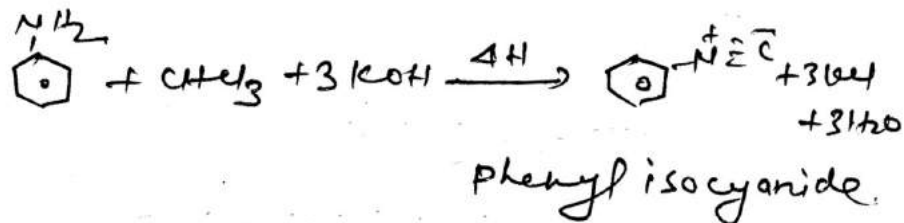 NH2
+ CHCl3 + 3 KOH ΔH → N⁺≡C⁻ + 3KCl
+ 3H2O
Phenyl isocyanide.